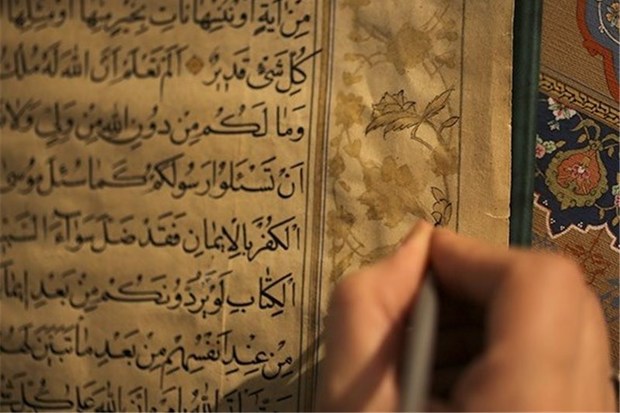 مِنْ آيَةٍ أَوْ نُنْسِهَا نَأْتِ بِخَيْرٍ مِنْهَا أَوْ مِثْلِهَا
كُلِّ شَىْءٍ قَدِيرٌ أَلَمْ تَعْلَمْ أَنَّ اللهَ لَهُ مُلْكُ
وَمَا لَكُمْ مِنْ دُونِ اللهِ مِنْ وَلِيٍّ وَلَا
أَنْ تَسْئَلُوا رَسُولَكُمْ كَمَا سُئِلَ مُوسَى
الْكُفْرَ بِالْإِيمَانِ فَقَدْ ضَلَّ سَوَآءَ
الْكِتَابِ لَوْ يَرُدُّونَكُمْ مِنْ بَعْدِ
مِنْ عِنْدِ أَنْفُسِهِمْ مِنْ بَعْدِ مَا تَبَيَّنَ
إِنَّ اللهَ عَلَى كُلِّ